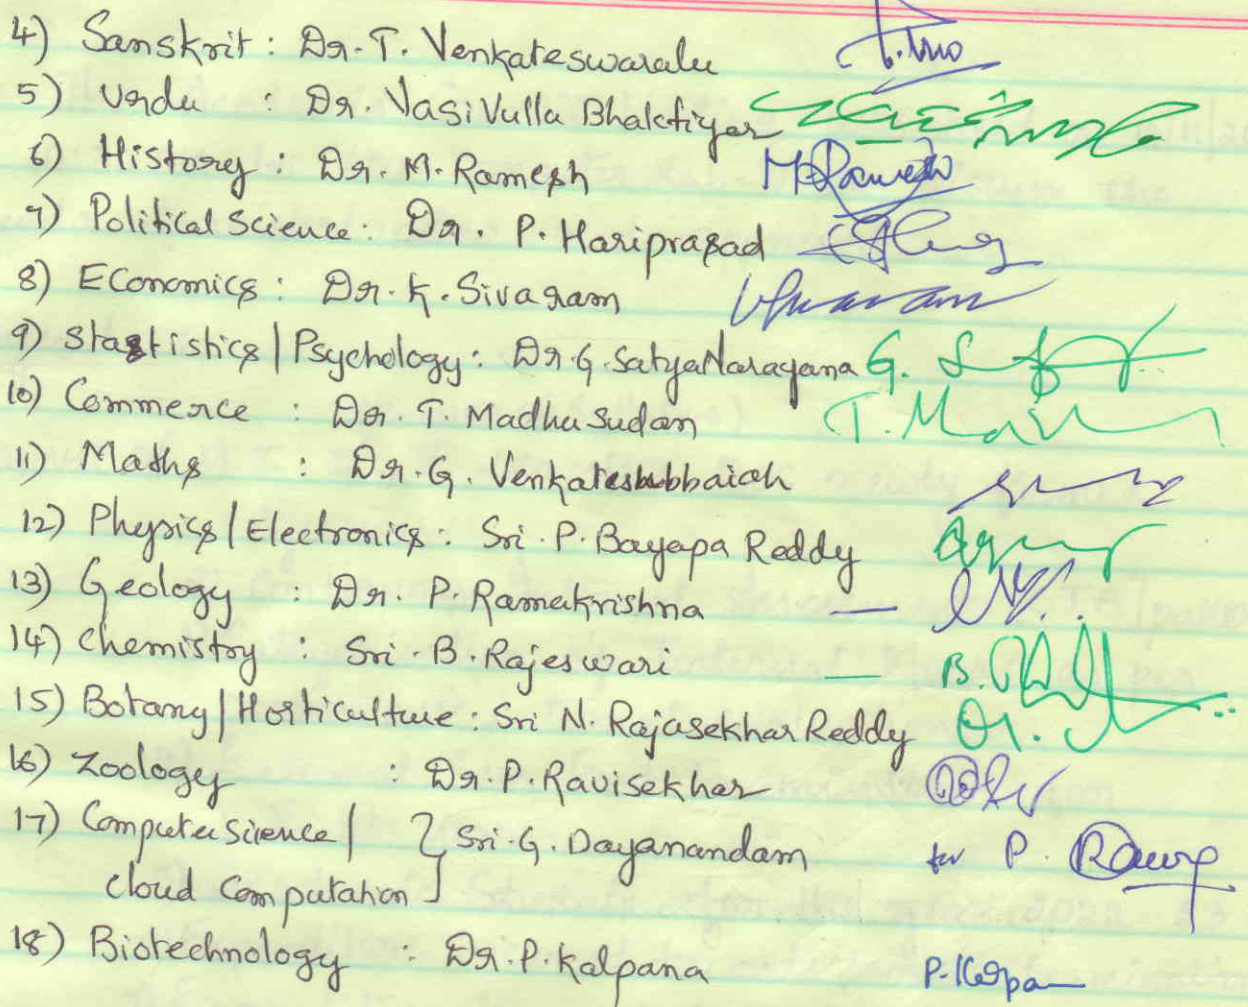 4) Sanskrit : Dr. T. Venkateswaralu
5) Urdu : Dr. Vasi Vulla Bhaktiyar
6) History : Dr. M. Ramesh M. Ramesh
7) Political Science : Dr. P. Hariprasad
8) Economics : Dr. K. Sivaram
9) Stastistics | Psychology : Dr. G. SatyaNarayana G. S
10) Commerce : Dr. T. Madhu Sudan T. Ma
11) Maths : Dr. G. Venkatesubbaiah
12) Physics | Electronics : Sri . P. Bayapa Reddy
13) Geology : Dr. P. Ramakrishna —
14) Chemistry : Sri . B. Rajeswari — B.
15) Botany | Horticulture : Sri N. Rajasekhar Reddy
16) Zoology : Dr. P. Ravisekhar
17) Computer Science | } Sri . G. Dayanandam for P.
cloud Computation
18) Biotechnology : Dr. P. Kalpana P. Kalpa